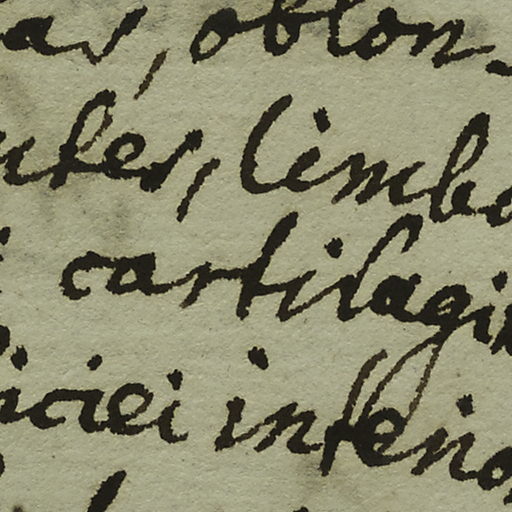 as, oblon-
ntes, limbo
cartilagin
iciei interio